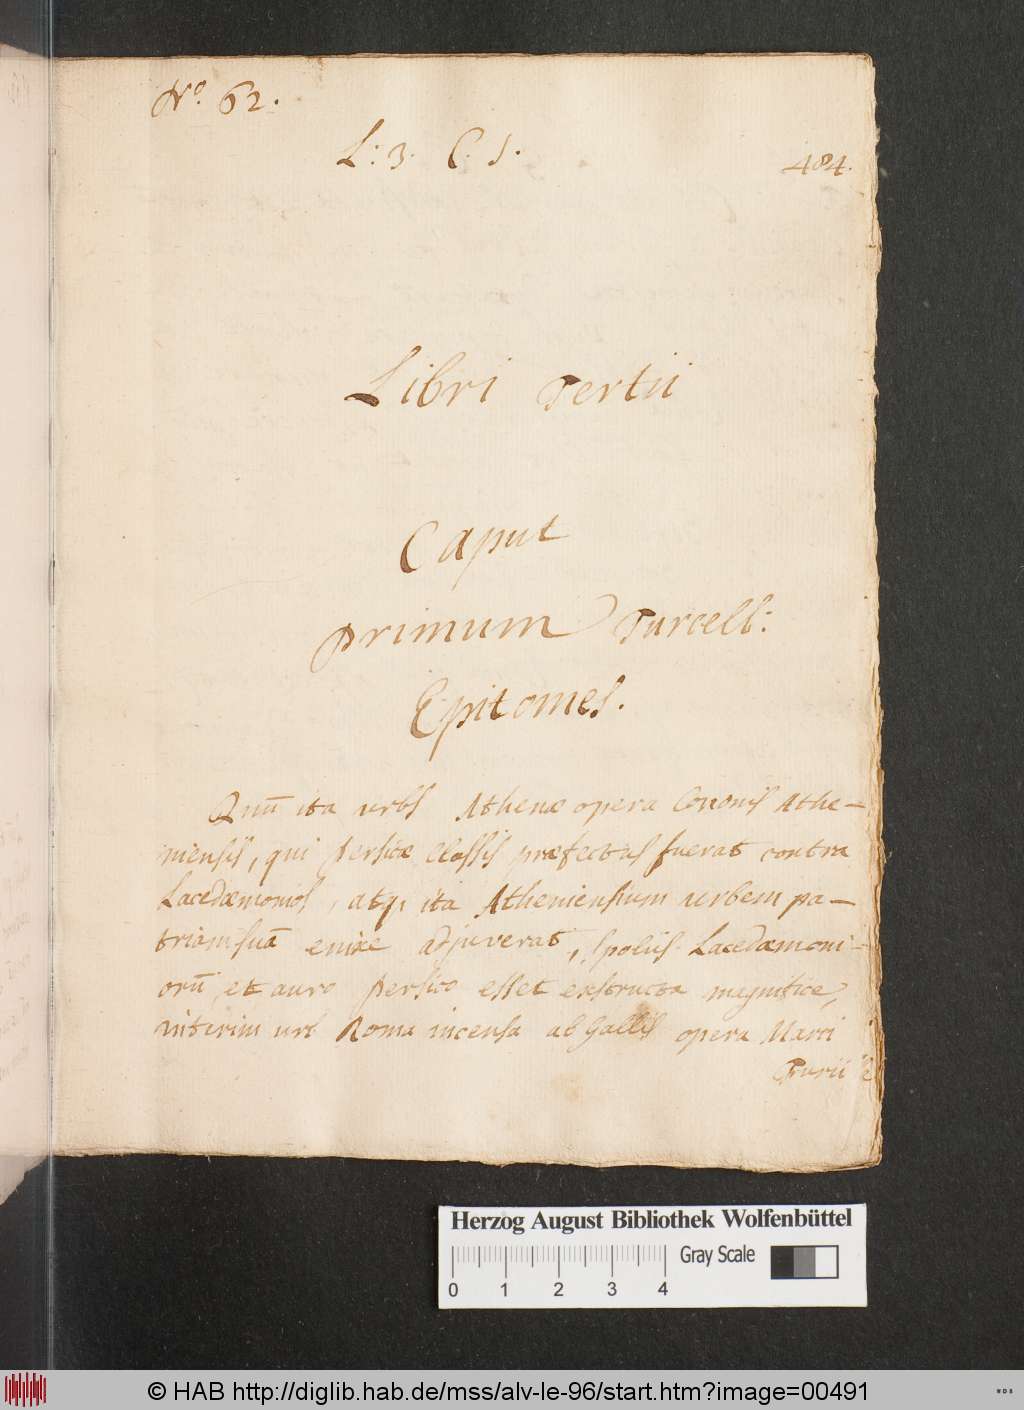 No. 62.
L: 3. C. 1.
484.
Libri Tertii
Caput
primum Turcell:
Epitomes.
Quū ita urbs Athenæ opera Cononis Athe-
niensis, qui Persicæ classis præfectus fuerat contra
Lacedæmonios, atq; ita Atheniensium urbem pa-
triam suā enixe adjuverat, spoliis Lacedæmoni-
orū et auro Persico esset exstructa magnifice,
interim urbs Roma incensa ab Gallis opera Marci
Furii
Herzog August Bibliothek Wolfenbüttel
Gray Scale
0 1 2 3 4
© HAB http://diglib.hab.de/mss/alv-le-96/start.htm?image=00491